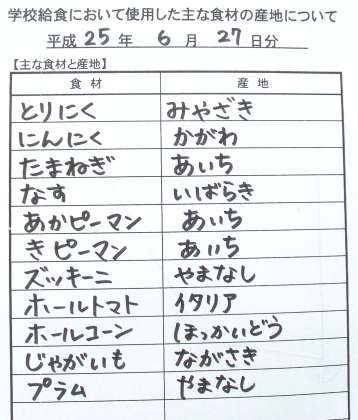 学校給食において使用した主な食材の産地について
平成 25 年 6 月 27 日分
【主な食材と産地】
食材 産地
とりにく みやざき
にんにく かがわ
たまねぎ あいち
なす いばらき
あかピーマン あいち
きピーマン あいち
ズッキーニ やまなし
ホールトマト イタリア
ホールコーン ほっかいどう
じゃがいも ながさき
プラム やまなし